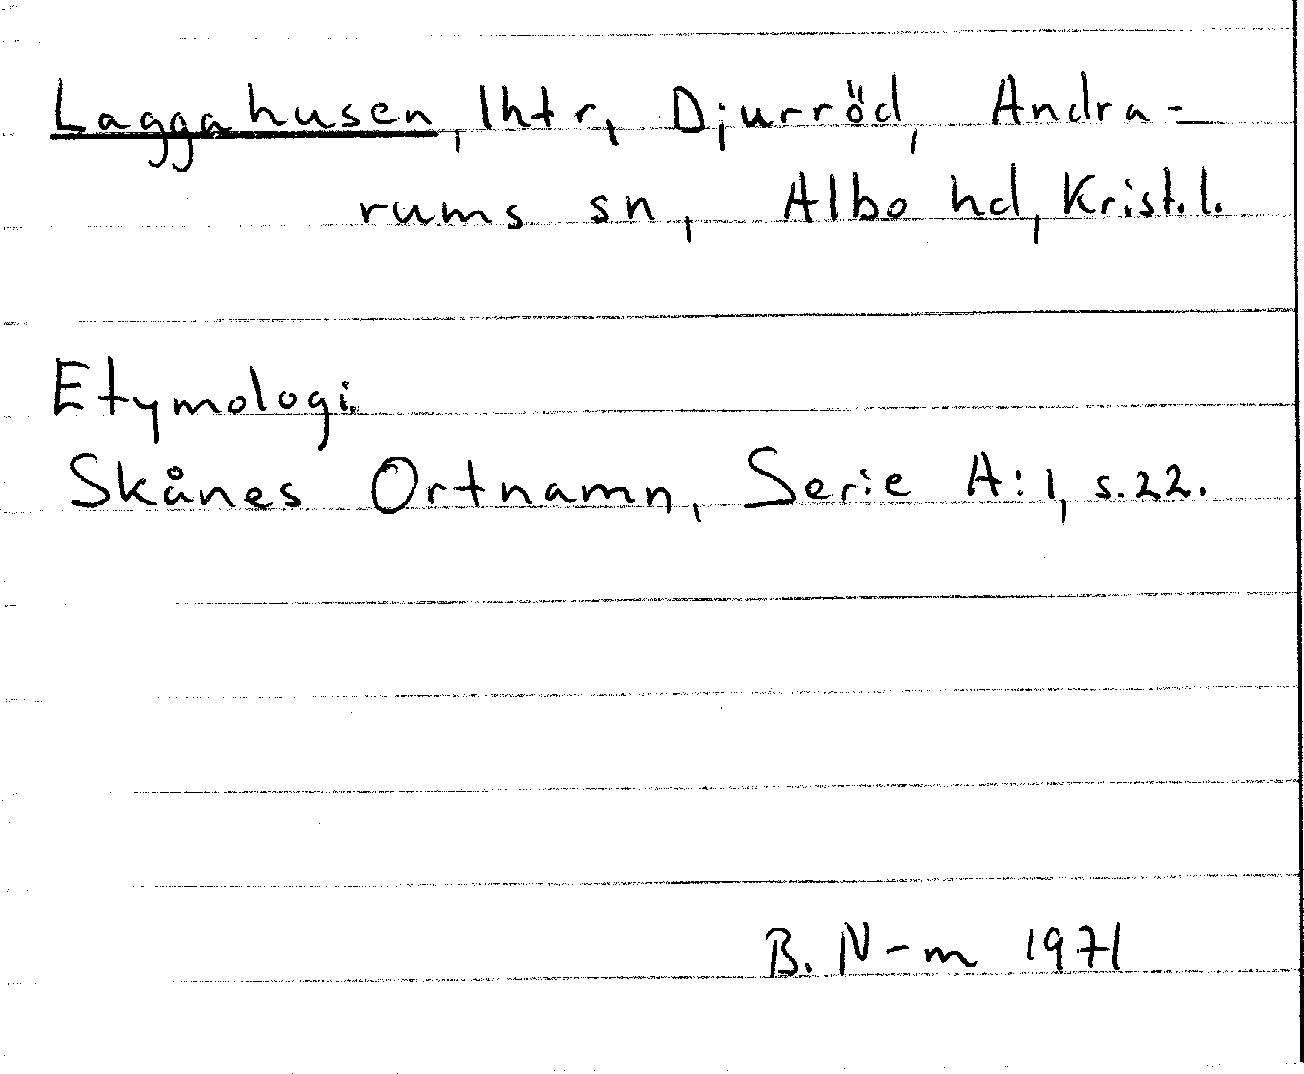 Laggahusen, lhtr, Djurröd, Andra-
rums sn, Albo hd, Krist.l.
Etymologi
Skånes Ortnamn, Serie A:1, s.22.
B. N-m 1971